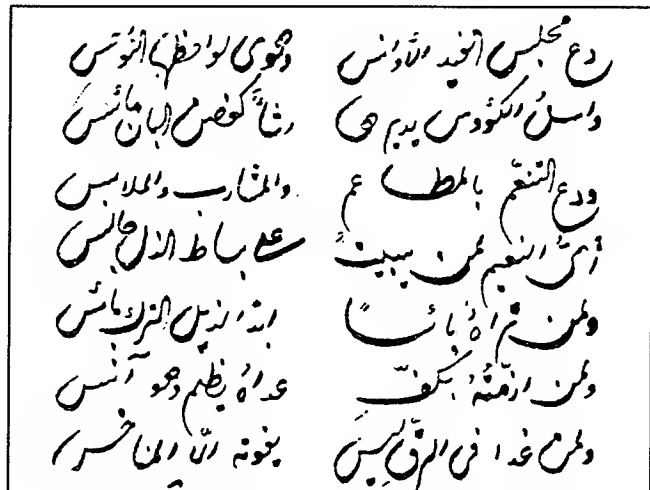 دع مجلس الغيد الأوانس وهوى لواحظها النواعس
واسلُ الكؤوس يديرها رشأٌ كغصن البان مائس
ودع التنعّم بالمطاعم والمشارب والملابس
أيُّ النعيم لمن يبيتُ على بساط الذل جالس
ولمن تراهُ بائساً ابداً لذيل الترك بائس
ولمن ازمّتُهُ بكفّ عداهُ يظلم وهو آنس
ولمن غدا في الرقّ ليس يفوته الّا المناخس